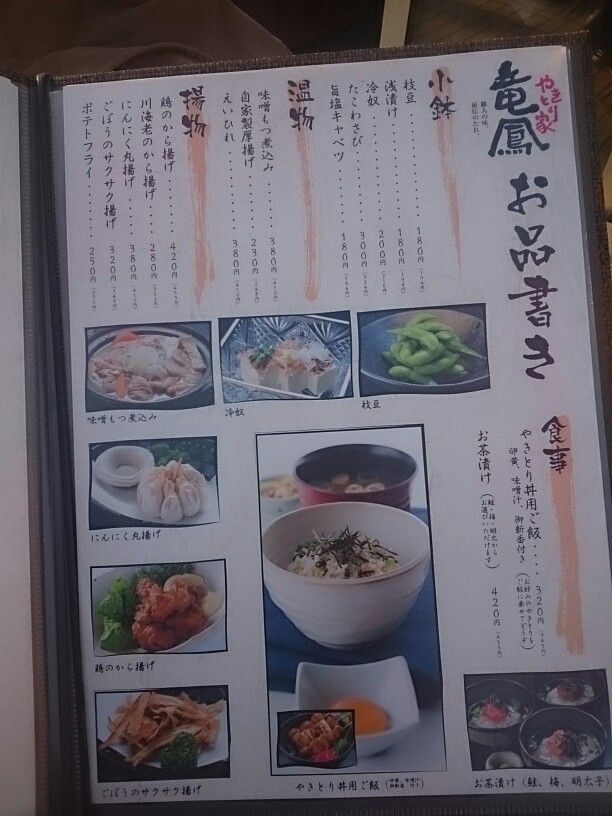 やきとり家
竜鳳
職人の味
秘伝のたれ。
お品書き
小鉢
枝豆.............180円
浅漬け...........180円
冷奴.............200円
たこわさび.......300円
旨塩キャベツ.....180円
温物
味噌もつ煮込み...380円
自家製厚揚げ.....230円
えいひれ.........380円
揚物
鶏のから揚げ.....420円
川海老のから揚げ...280円
にんにく丸揚げ...380円
ごぼうのサクサク揚げ...320円
ポテトフライ.....250円
枝豆
冷奴
味噌もつ煮込み
にんにく丸揚げ
鶏のから揚げ
ごぼうのサクサク揚げ
食事
やきとり丼用ご飯....320円
卵黄、味噌汁、御新香付き
(お好みのやきとりを
ご飯に乗せてどうぞ)
お茶漬け
(鮭・梅・明太から
お選びいただけます)
420円
やきとり丼用ご飯
お茶漬け(鮭、梅、明太子)